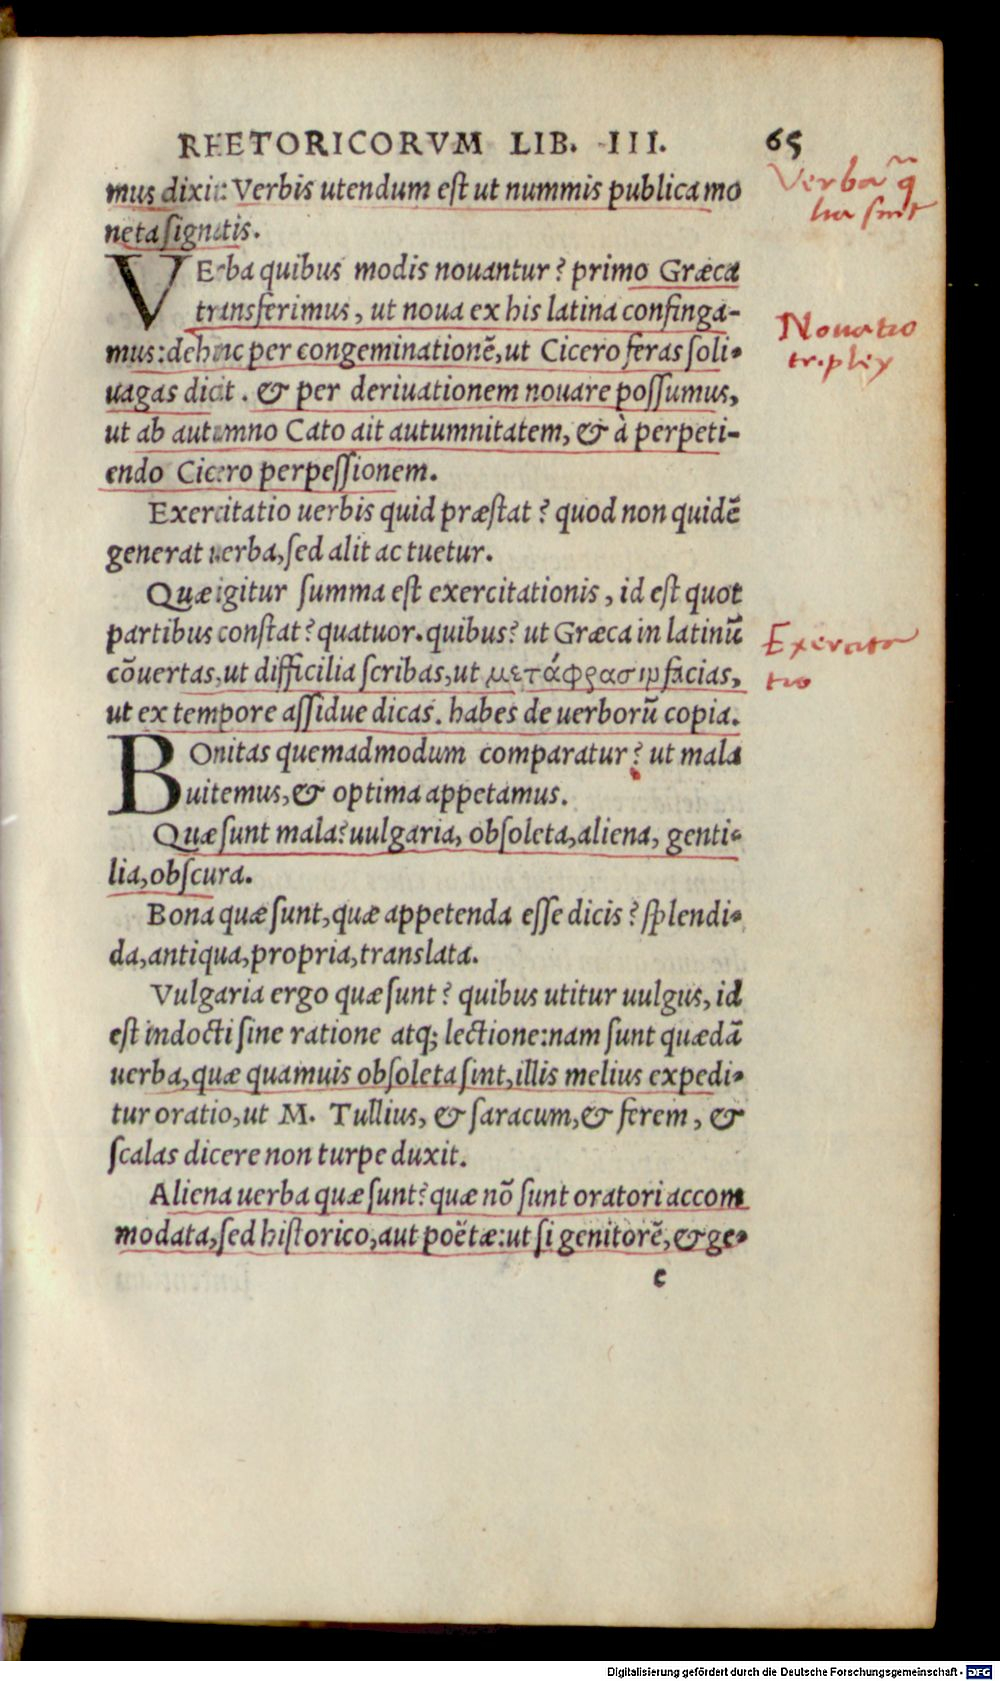 RHETORICORVM LIB. III. 65
mus dixit: Verbis utendum est ut nummis publica mo
neta signatis.
VErba quibus modis nouantur? primo Græca
transferimus, ut noua ex his latina confinga-
mus: dehinc per congeminationē, ut Cicero feras soli-
uagas dicit. & per deriuationem nouare possumus,
ut ab autumno Cato ait autumnitatem, & à perpeti-
endo Cicero perpessionem.
Exercitatio uerbis quid præstat? quod non quidē
generat uerba, sed alit ac tuetur.
Quæ igitur summa est exercitationis, id est quot
partibus constat? quatuor. quibus? ut Græca in latinū
cōuertas, ut difficilia scribas, ut μετάφρασιν facias,
ut ex tempore assidue dicas. habes de uerborū copia.
BOnitas quemadmodum comparatur? ut mala
uitemus, & optima appetamus.
Quæ sunt mala? uulgaria, obsoleta, aliena, genti-
lia, obscura.
Bona quæ sunt, quæ appetenda esse dicis? splendi-
da, antiqua, propria, translata.
Vulgaria ergo quæ sunt? quibus utitur uulgus, id
est indocti sine ratione atq; lectione: nam sunt quædā
uerba, quæ quamuis obsoleta sint, illis melius expedi-
tur oratio, ut M. Tullius, & saracum, & ferem, &
scalas dicere non turpe duxit.
Aliena uerba quæ sunt? quæ nō sunt oratori accom
modata, sed historico, aut poëtæ: ut si genitorē, & ge-
e
Verba q̄
lia sint
Nouatio
triplex
Exercita
tio
Digitalisierung gefördert durch die Deutsche Forschungsgemeinschaft - DFG